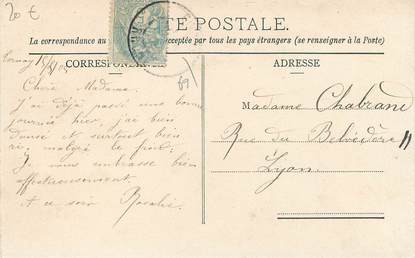 20 €
CARTE POSTALE.
La correspondance au acceptée par tous les pays étrangers (se renseigner à la Poste)
CORRESPONDANCE
ADRESSE
Chère Madame,
J'ai déjà passé une bonne
journée hier, j'ai bien
dansé et surtout bien
ri, malgré le froid;
Je vous embrasse bien
affectueusement.
A ce soir Rosalie.
89
Madame Chabrand
Rue du Belvédère 11
Lyon